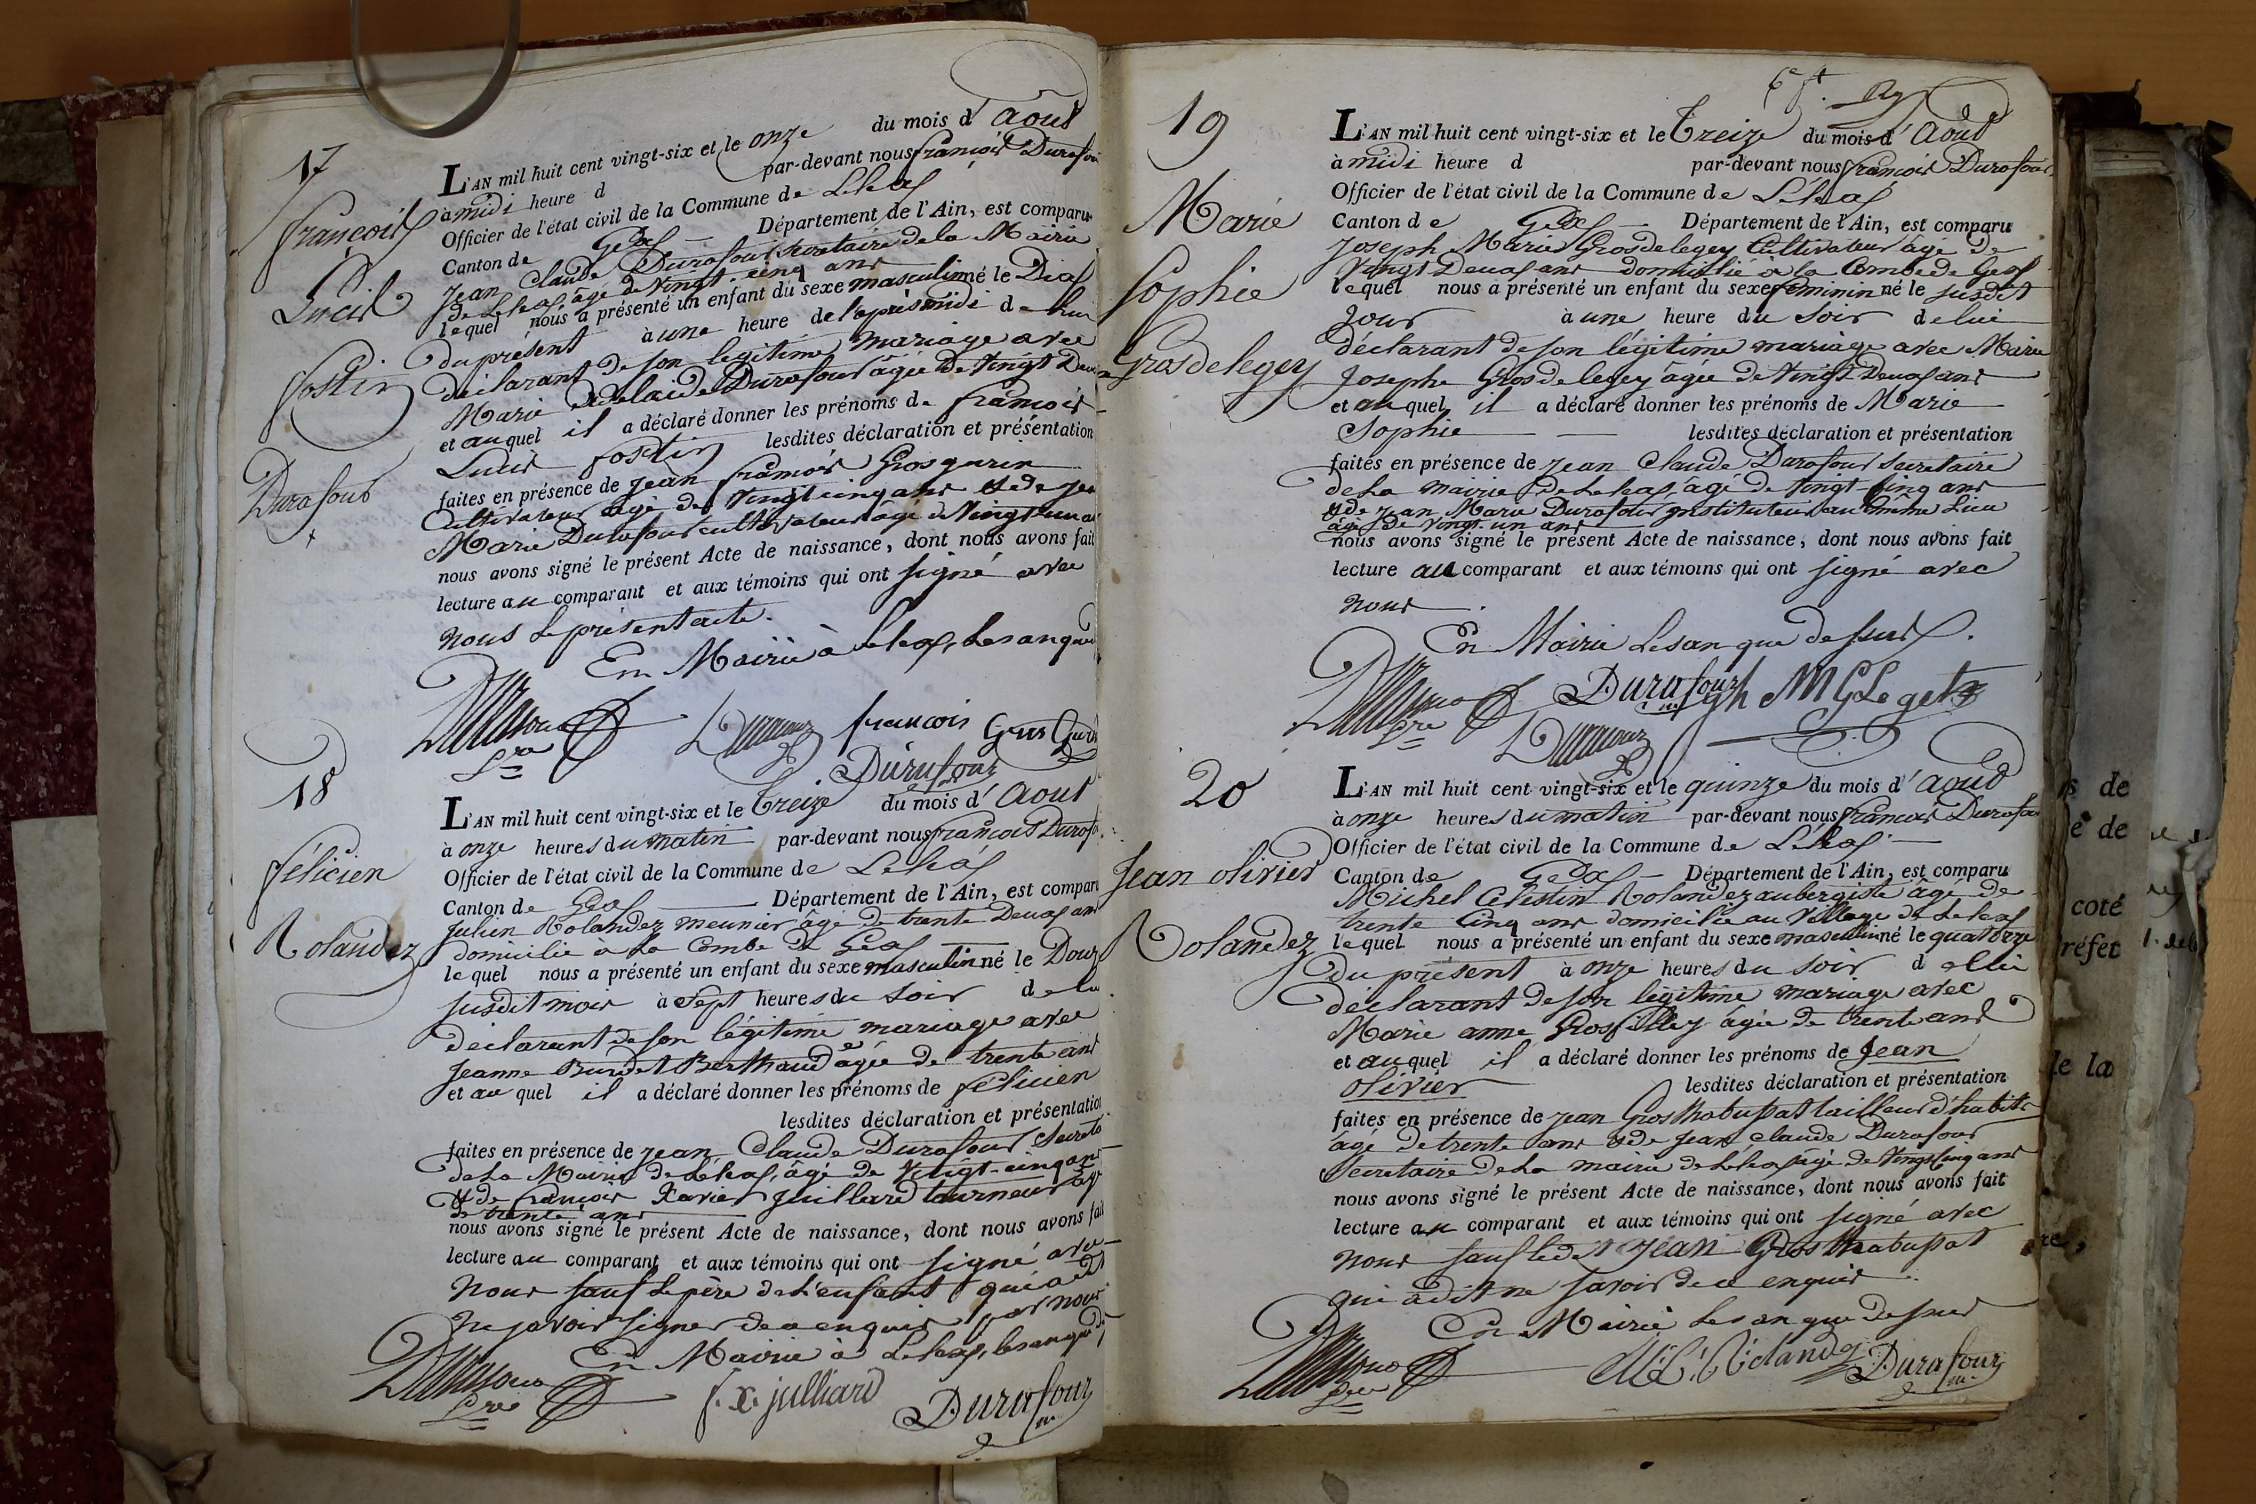 17
François
Lucie
fostin
Durafour
L'AN mil huit cent vingt-six et le onze du mois d'Aout
à midi heure d par-devant nous françois Durafour
Officier de l'état civil de la Commune de Lelex
Canton de Gex Département de l'Ain, est comparu
Jean Claude Durafour secretaire de la Mairie
de Lelex, âgé de Vingt-cinq ans
lequel nous a présenté un enfant du sexe masculin né le Dix
du présent à une heure de l'après midi de lui
déclarant de son légitime mariage avec
Marie adelaide Durafour âgée de vingt Deux
et au quel il a déclaré donner les prénoms de françois
Lucie fostin lesdites déclaration et présentation
faites en présence de jean françois Grosgurin
Cultivateur âgé de Vingt cinq ans & de jean
Marie Durafour cultivateur agé de Vingt un ans
nous avons signé le présent Acte de naissance, dont nous avons fait
lecture au comparant et aux témoins qui ont signé avec
nous le présent acte.
En Mairie à Lelex, Les an que
françois Gros Gurin
Durafour
18
félicien
Rolandez
L'AN mil huit cent vingt-six et le treize du mois d'Aout
à onze heures du matin par-devant nous françois Durafour
Officier de l'état civil de la Commune de Lelex
Canton de Gex Département de l'Ain, est comparu
Julien Rolandez meunier âgé de trente Deux ans
domicilié à la Combe de Gex
lequel nous a présenté un enfant du sexe masculin né le Douze
susdit mois à sept heures du soir de lui
déclarant de son légitime mariage avec
Jeanne Burdet Berthaud âgée de trente ans
et au quel il a déclaré donner les prénoms de félicien
lesdites déclaration et présentation
faites en présence de jean Claude Durafour Secreta
de La Mairie de Lelex, âgé de Vingt-cinq ans
& de françois Xavier Juillard tourneur agé
de trente ans
nous avons signé le présent Acte de naissance, dont nous avons fait
lecture au comparant et aux témoins qui ont signé avec
nous sauf le père de l'enfant qui a dit
ne savoir signer de ce enquis par nous
En Mairie à Lelex, les an que de
f. x. julliard Durafour
19
Marie
Sophie
Grosdelegey
L'AN mil huit cent vingt-six et le treize du mois d'Aout
à midi heure d par-devant nous françois Durafour
Officier de l'état civil de la Commune de Lelex
Canton de Gex Département de l'Ain, est comparu
Joseph Marie Grosdelegey Cultivateur âgé de
Vingt Deux ans domicilié à la Combe de Gex
lequel nous a présenté un enfant du sexe féminin né le susdit
jour à une heure du soir de lui
déclarant de son légitime mariage avec Marie
Josephe Gros de legey âgée de Vingt Deux ans
et au quel il a déclaré donner les prénoms de Marie
Sophie lesdites déclaration et présentation
faites en présence de jean Claude Durafour secretaire
de La mairie de Lelex, âgé de Vingt-cinq ans
& de jean Marie Durafour jnstituteur au même Lieu
âgé de Vingt-un ans
nous avons signé le présent Acte de naissance, dont nous avons fait
lecture au comparant et aux témoins qui ont signé avec
nous.
En Mairie Les an que dessus.
Durafour
20
Jean olivier
Rolandez
L'AN mil huit cent vingt-six et le quinze du mois d'Aout
à onze heures du matin par-devant nous françois Durafour
Officier de l'état civil de la Commune de Lelex
Canton de Gex Département de l'Ain, est comparu
Michel Célestin Rolandez aubergiste âgé de
trente Cinq ans domicilié au Village de Lelex
lequel nous a présenté un enfant du sexe masculin né le quatorze
du présent à onze heures du soir de lui
déclarant de son légitime mariage avec
Marie anne Grosfilley âgée de trente ans
et au quel il a déclaré donner les prénoms de Jean
olivier lesdites déclaration et présentation
faites en présence de jean Grosthabussat tailleur d'habits
âgé de trente ans & de jean claude Durafour
Secretaire de La mairie de Lelex âgé de Vingt Cinq ans
nous avons signé le présent Acte de naissance, dont nous avons fait
lecture au comparant et aux témoins qui ont signé avec
nous sauf ledit jean Grosthabussat
qui a dit ne savoir de ce enquis
En Mairie Les an que dessus
Durafour
de
de
coté
réfet
de la